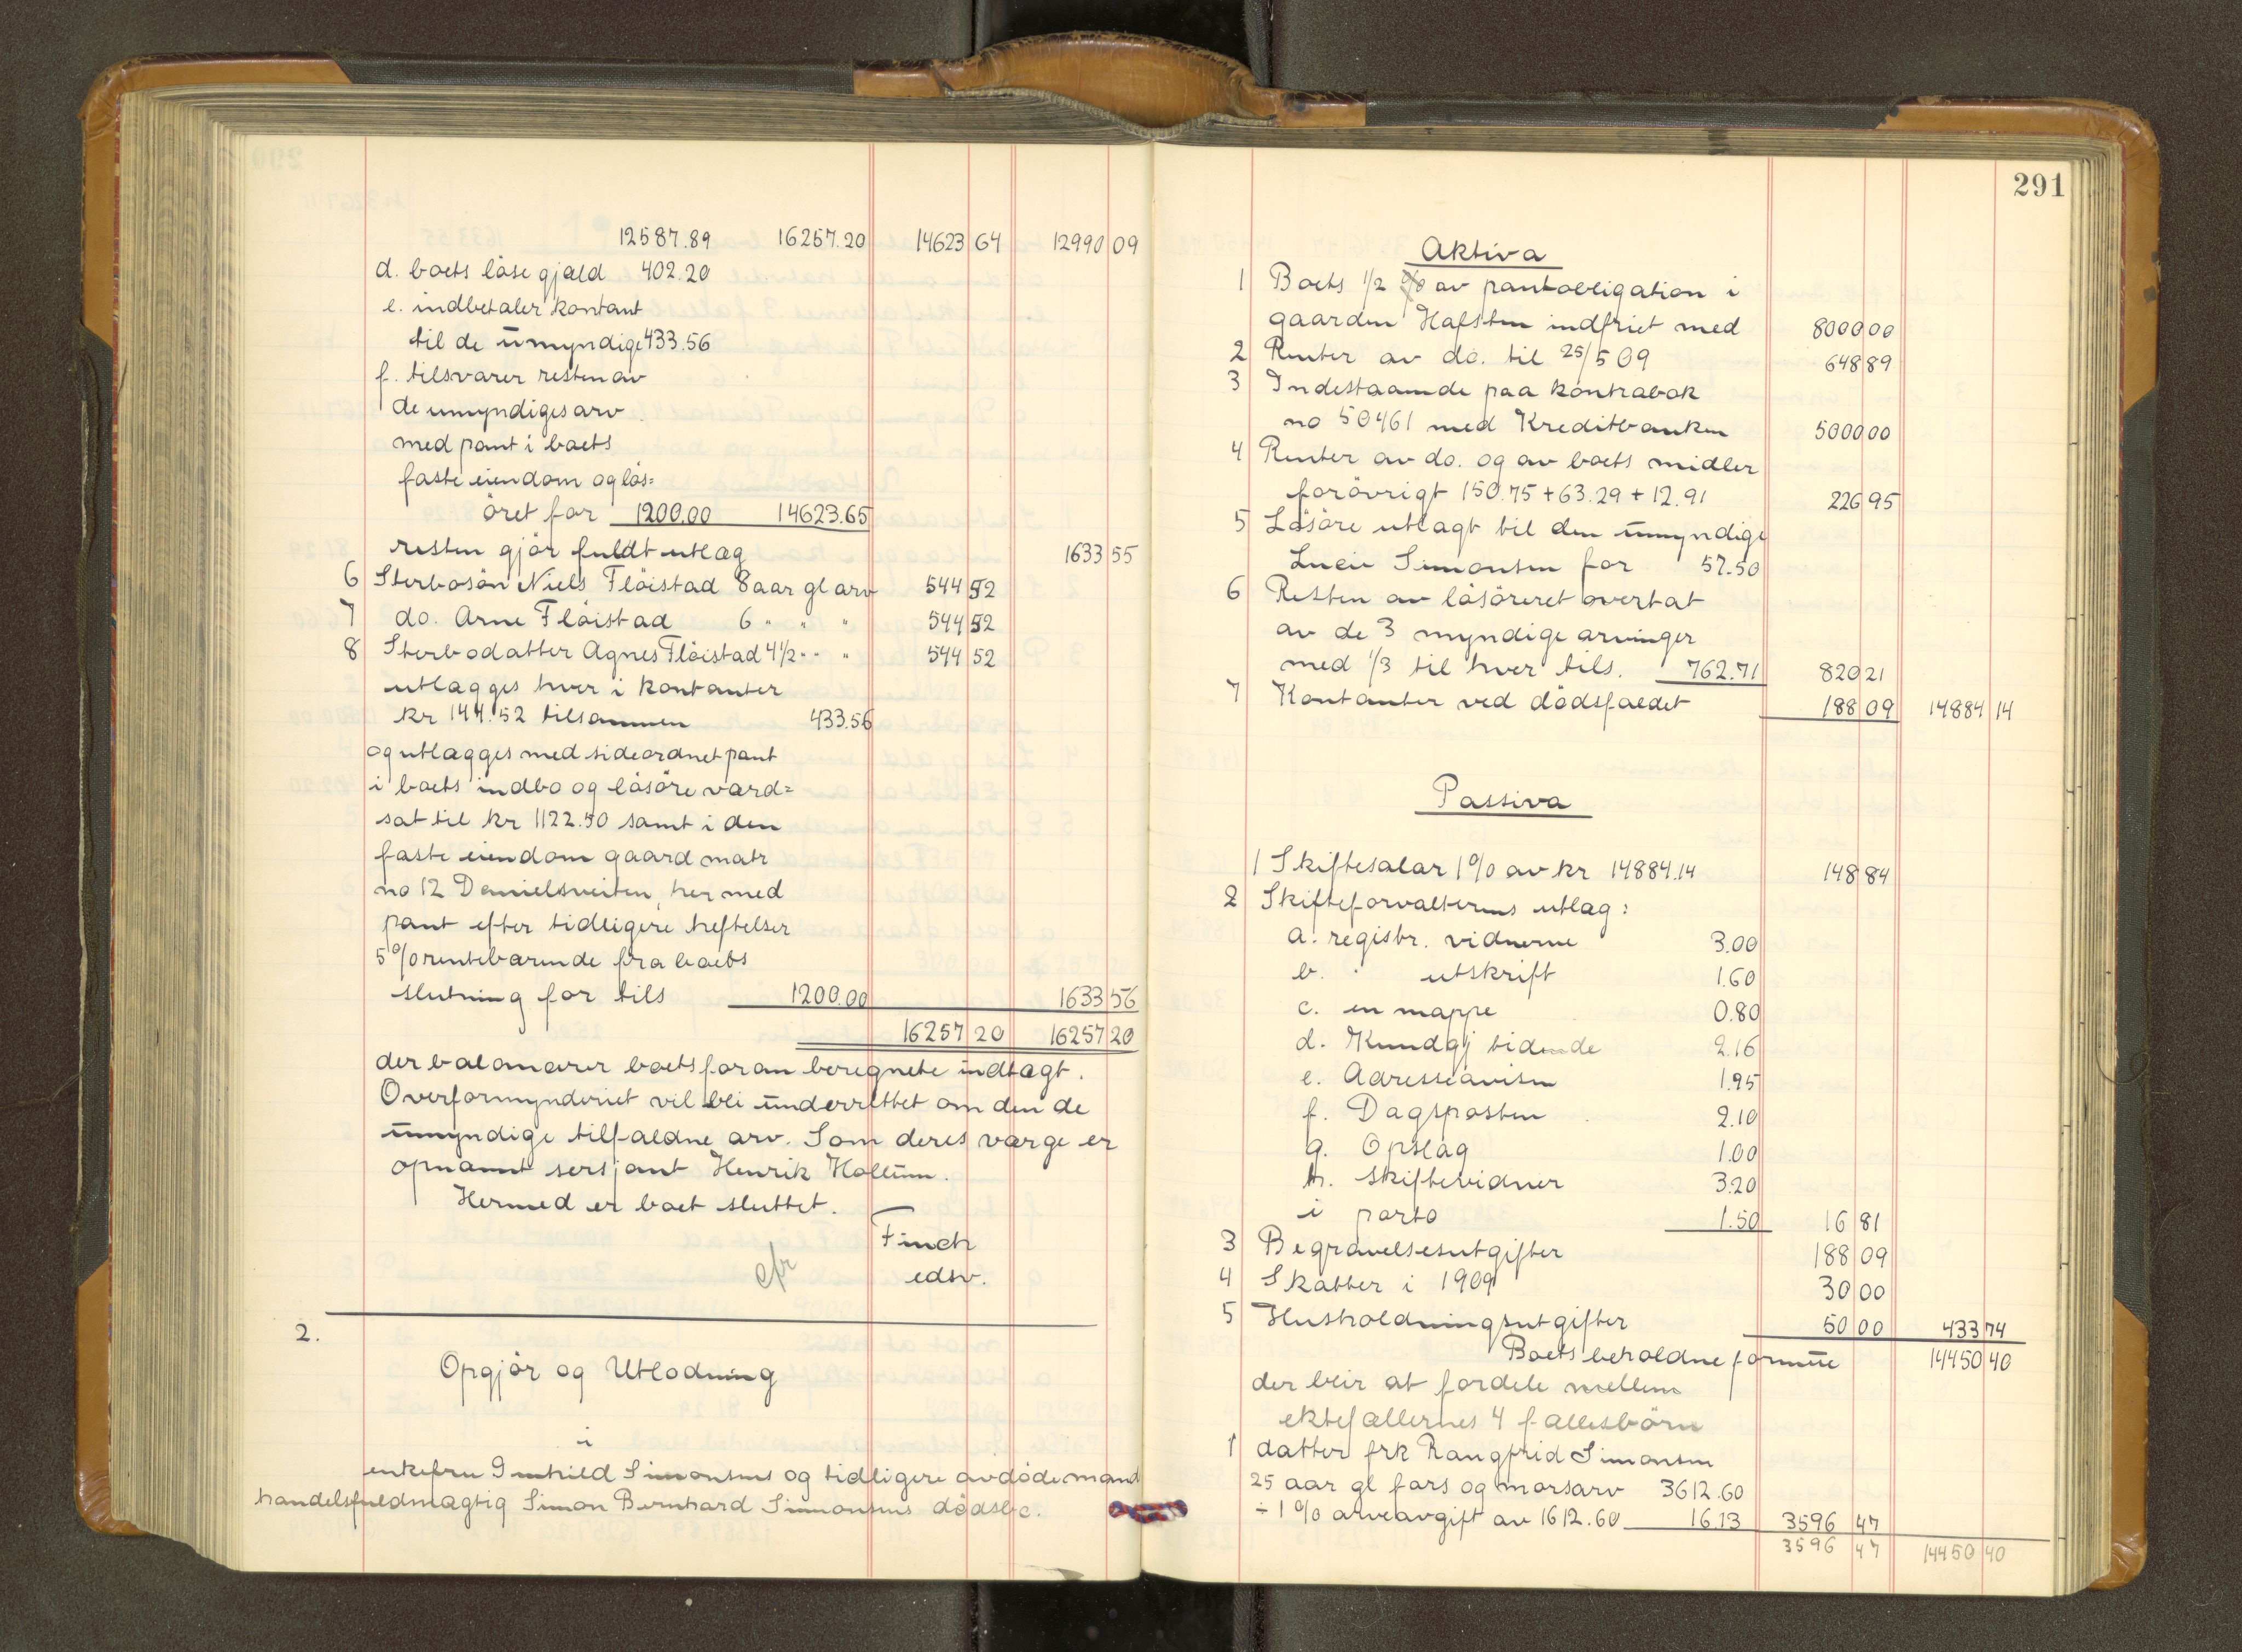 12587.89 16257.20 14623 64 12990 09
d. boets löse gjæld 402.20
e. indbetaler kontant
til de umyndige 433.56
f. tilsvarer resten av
de umyndiges arv
med pant i boets
faste eiendom og løs=
øret for 1200.00 14623.65
resten gjør fuldt utlæg 1633 55
6 Sterbosön Niels Flöistad 8 aar gl arv 544 52
7 do. Arne Flöistad 6 " " " 544 52
8 Sterbodatter Agnes Flöistad 4 1/2 " " " 544 52
utlægges hver i kontanter
kr 144.52 tilsammen 433.56
og utlægges med sideordnet pant
i boets indbo og lösöre værd=
sat til kr 1122.50 samt i den
faste eiendom gaard matr
no 12 Danielsveiten, her med
pant efter tidligere heftelser
5 % rentebærende fra boets
slutning for tils 1200.00 1633 56
16257 20 16257 20
der balancerer boets foran beregnete indtægt.
Overformynderiet vil bli underrettet om den de
umyndige tilfaldne arv. Som deres værge er
opnævnt sersjant Henrik Hollum.
Hermed er boet sluttet.
Finch
edsv.
cfr
2.
Opgjör og Utlodning
i
enkefru Simonsens og tidligere avdöde mand
handelsfuldmægtig Simon Bernhard Simonsens dödsbo.
291
Aktiva
1 Boets 1/2 av pantobligation i
gaarden Hafsten indfriet med 8000 00
2 Renter av do. til 25/5 09 648 89
3 Indestaaende paa kontrabok
no 50461 med Kreditbanken 5000 00
4 Renter av do. og av boets midler
forövrigt 150.75 + 63.29 + 12.91 226 95
5 Lösöre utlagt til den umyndige
Lucie Simonsen for 57.50
6 Resten av lösöreret overtat
av de 3 myndige arvinger
med 1/3 til hver tils. 762.71 820 21
7 Kontanter ved dödsfaldet 188 09 14884 14
Passiva
1 Skiftesalær 1 % av kr 14884.14 148 84
2 Skifteforvalterens utlæg:
a. registr. vidnerne 3.00
b. " utskrift 1.60
c. en mappe 0.80
d. Kundgj tidende 2.16
e. Adresseavisen 1.95
f. Dagsposten 2.10
g. Opslag 1.00
h. skiftevidner 3.20
i porto 1.50 16 81
3 Begravelsesutgifter 188 09
4 Skatter i 1909 30 00
5 Husholdningsutgifter 50 00 433 74
Boets beholdne formue 14450 40
der blir at fordele mellem
ektefællernes 4 fællesbörn
1 datter frk Rangfrid Simonsen
25 aar gl fars og morsarv 3612.60
÷ 1 % arveavgift av 1612.60 16.13 3596 47
3596 47 14450 40